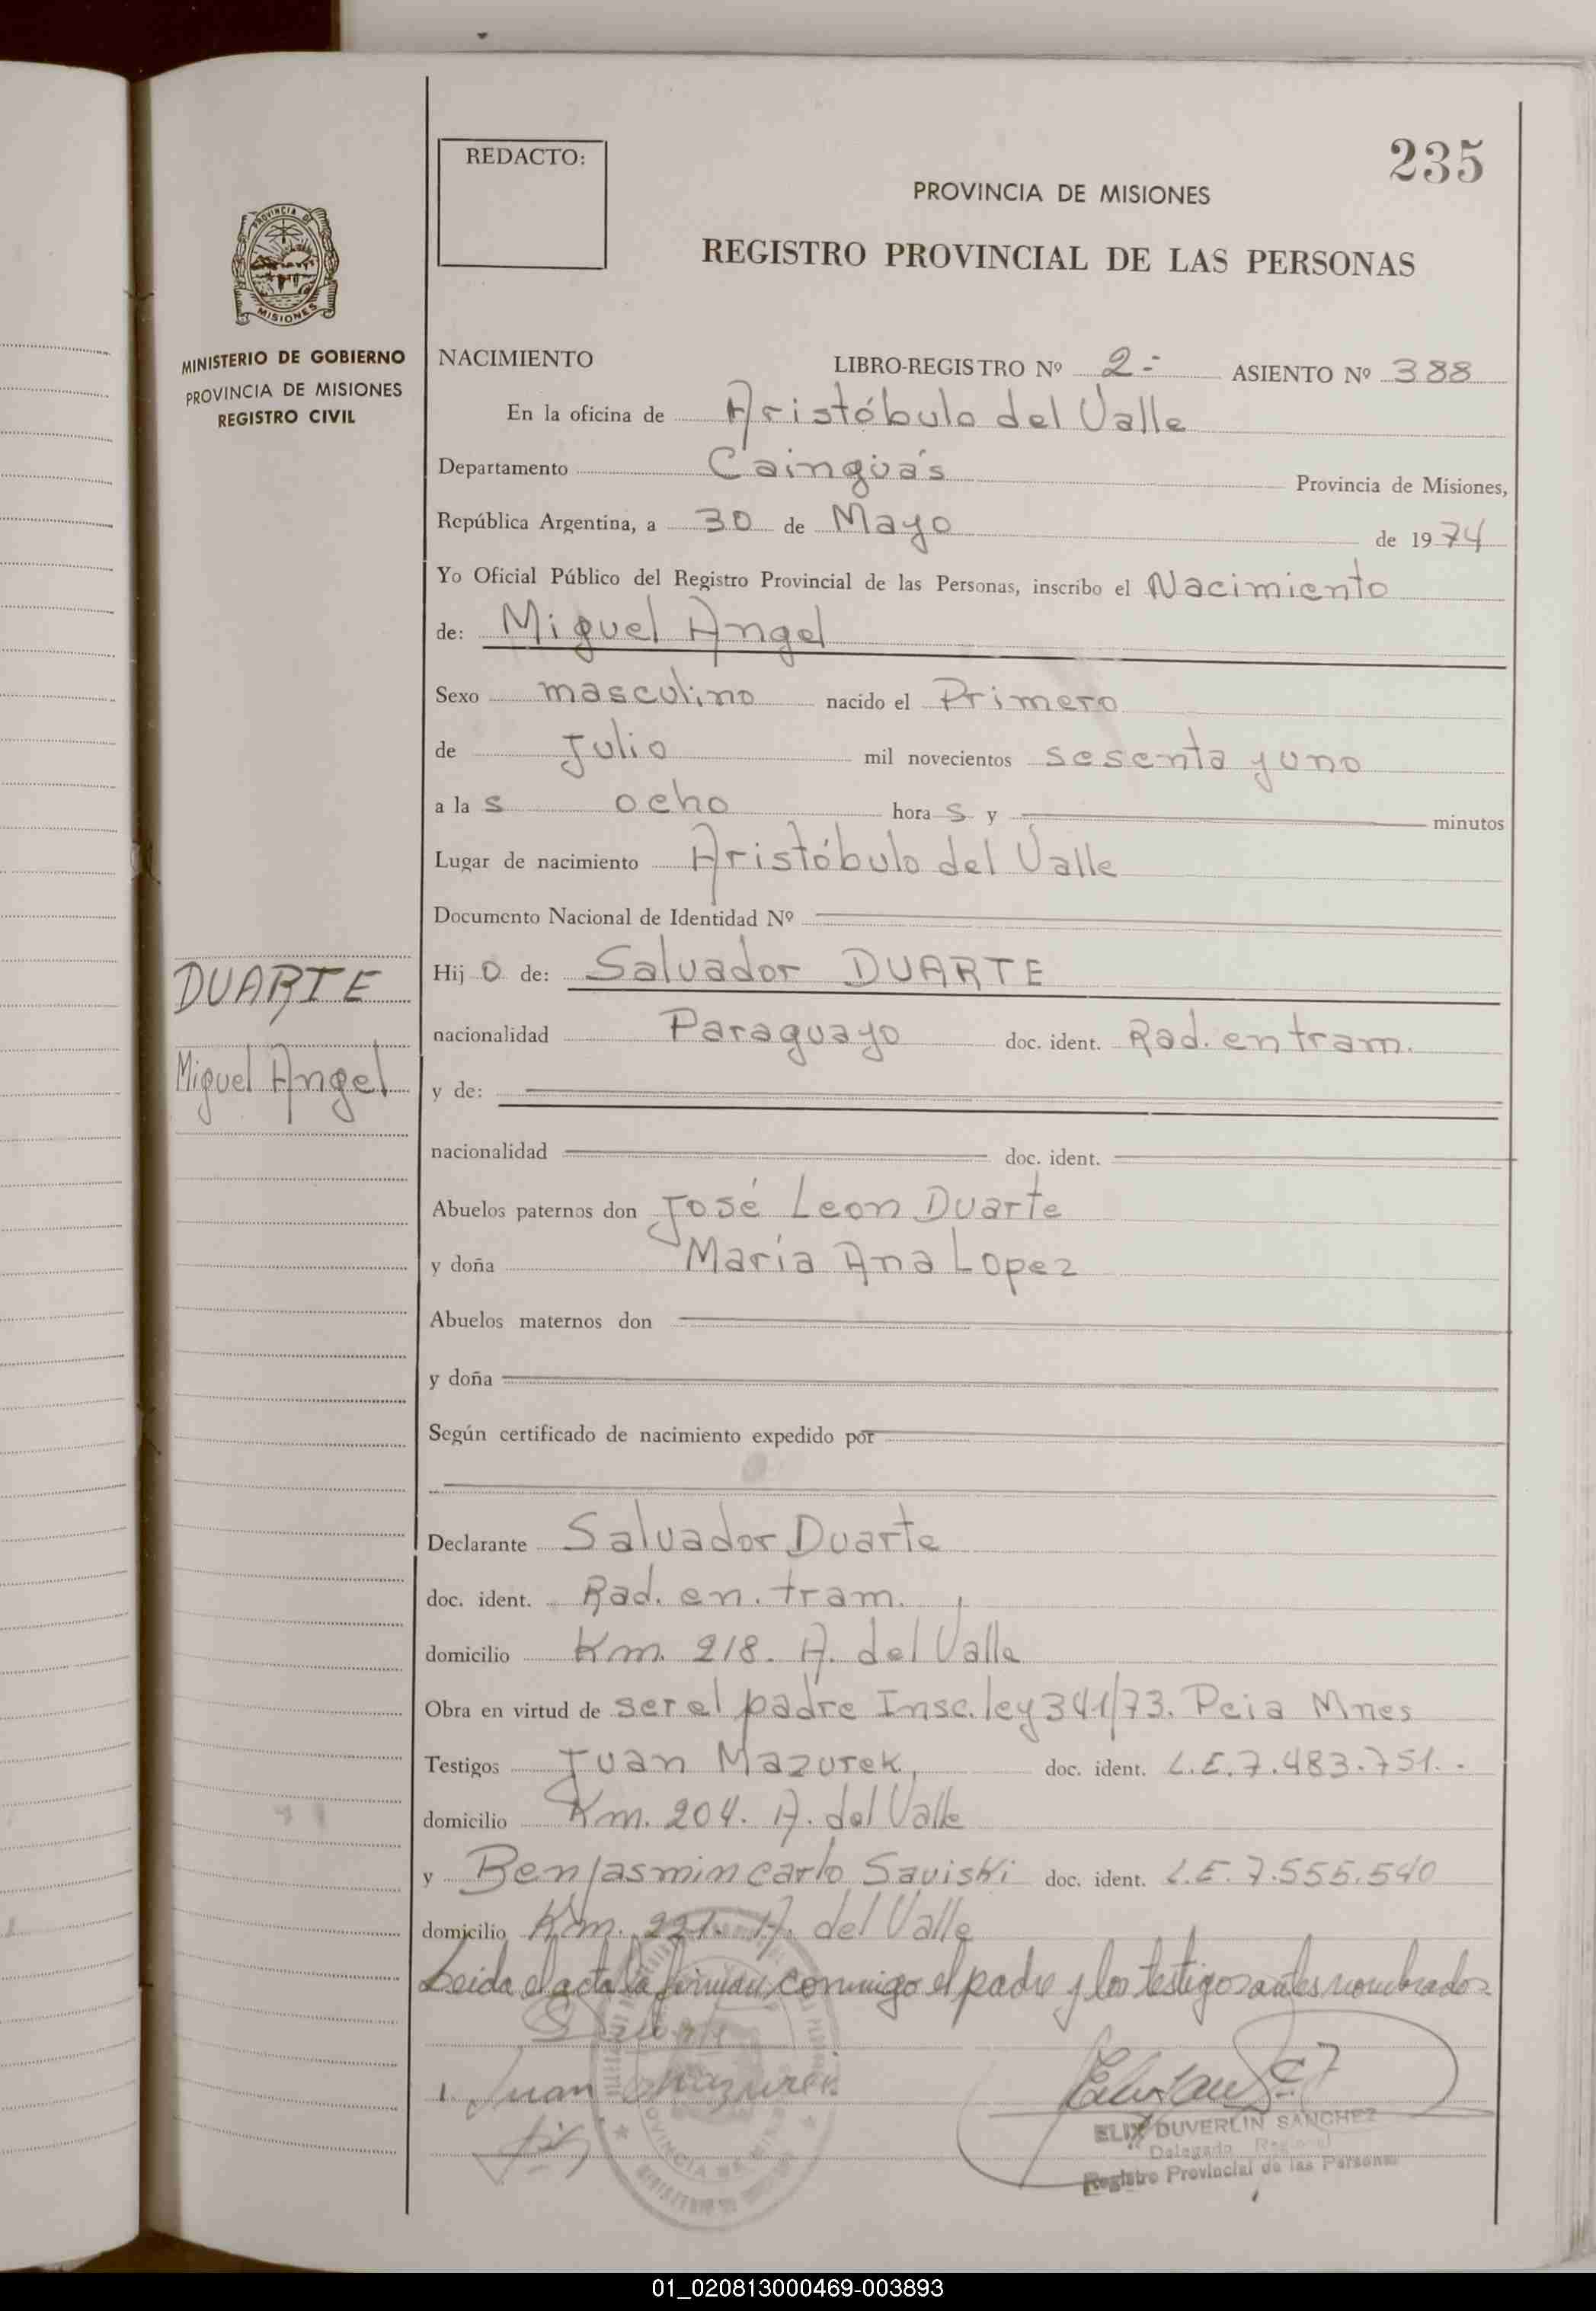 235
REDACTO:
PROVINCIA DE MISIONES
REGISTRO PROVINCIAL DE LAS PERSONAS
PROVINCIA DE
MISIONES
MINISTERIO DE GOBIERNO
PROVINCIA DE MISIONES
REGISTRO CIVIL
NACIMIENTO LIBRO-REGISTRO Nº 2.- ASIENTO Nº 388
En la oficina de Aristóbulo del Valle
Departamento Caingúas Provincia de Misiones,
República Argentina, a 30 de Mayo de 1974
Yo Oficial Público del Registro Provincial de las Personas, inscribo el Nacimiento
de: Miguel Angel
Sexo masculino nacido el Primero
de Julio mil novecientos sesenta y uno
a las ocho horas y minutos
Lugar de nacimiento Aristóbulo del Valle
Documento Nacional de Identidad Nº
DUARTE
Miguel Angel
Hijo de: Salvador DUARTE
nacionalidad Paraguayo doc. ident. Rad. en tram.
y de:
nacionalidad doc. ident.
Abuelos paternos don José Leon Duarte
y doña María Ana Lopez
Abuelos maternos don
y doña
Según certificado de nacimiento expedido por
Declarante Salvador Duarte
doc. ident. Rad. en. tram.
domicilio Km. 218. A. del Valle
Obra en virtud de ser el padre Insc. ley 341/73. Pcia Mnes
Testigos Juan Mazurek, doc. ident. L.E. 7.483.751..
domicilio Km. 204. A. del Valle
y Benjasmin carlo Saviski doc. ident. L.E. 7.555.540
domicilio Km. 221. A. del Valle
Leida el acta la firman conmigo el padre y los testigos antes nombrados.
Juan Mazurek
ELIX DUVERLIN SANCHEZ
Delegado Regional
Registro Provincial de las Personas
01_020813000469-003893